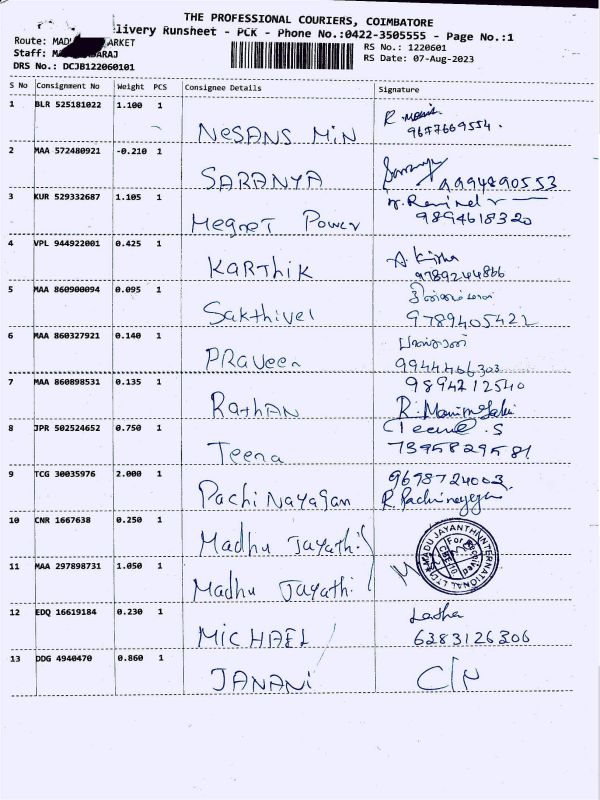 THE PROFESSIONAL COURIERS, COIMBATORE
livery Runsheet - PCK - Phone No.:0422-3505555 - Page No.:1
Route: MADU ARKET
RS No.: 1220601
Staff: M ARAJ
RS Date: 07-Aug-2023
DRS No.: DCJB122060101
S No Consignment No Weight PCS Consignee Details Signature
1 BLR 525181022 1.100 1 NESANS MiN R
9677669554.
2 MAA 572480921 -0.210 1 SARANYA
9994890553
3 KUR 529332687 1.105 1 Megnet Power
9894618320
4 VPL 944922001 0.425 1 KARTHIK A
9789244866
5 MAA 860900094 0.095 1 Sakthivel
9789405422
6 MAA 860327921 0.140 1 PRaveen
9944466303
7 MAA 860898531 0.135 1 RathAN 9894212540
R.
8 JPR 502524652 0.750 1 Teena Teena.S
7395829581
9 TCG 30035976 2.000 1 Pachi Nayagan 9698724003
R. Pachinayagan
10 CNR 1667638 0.250 1 Madhu Jayathi
MADU JAYANTHI INTERNATIONAL LTD
11 MAA 297898731 1.050 1 Madhu Jayathi
12 EDQ 16619184 0.230 1 MICHAEL
6383126306
13 DDG 4940470 0.860 1 JANANi C/N